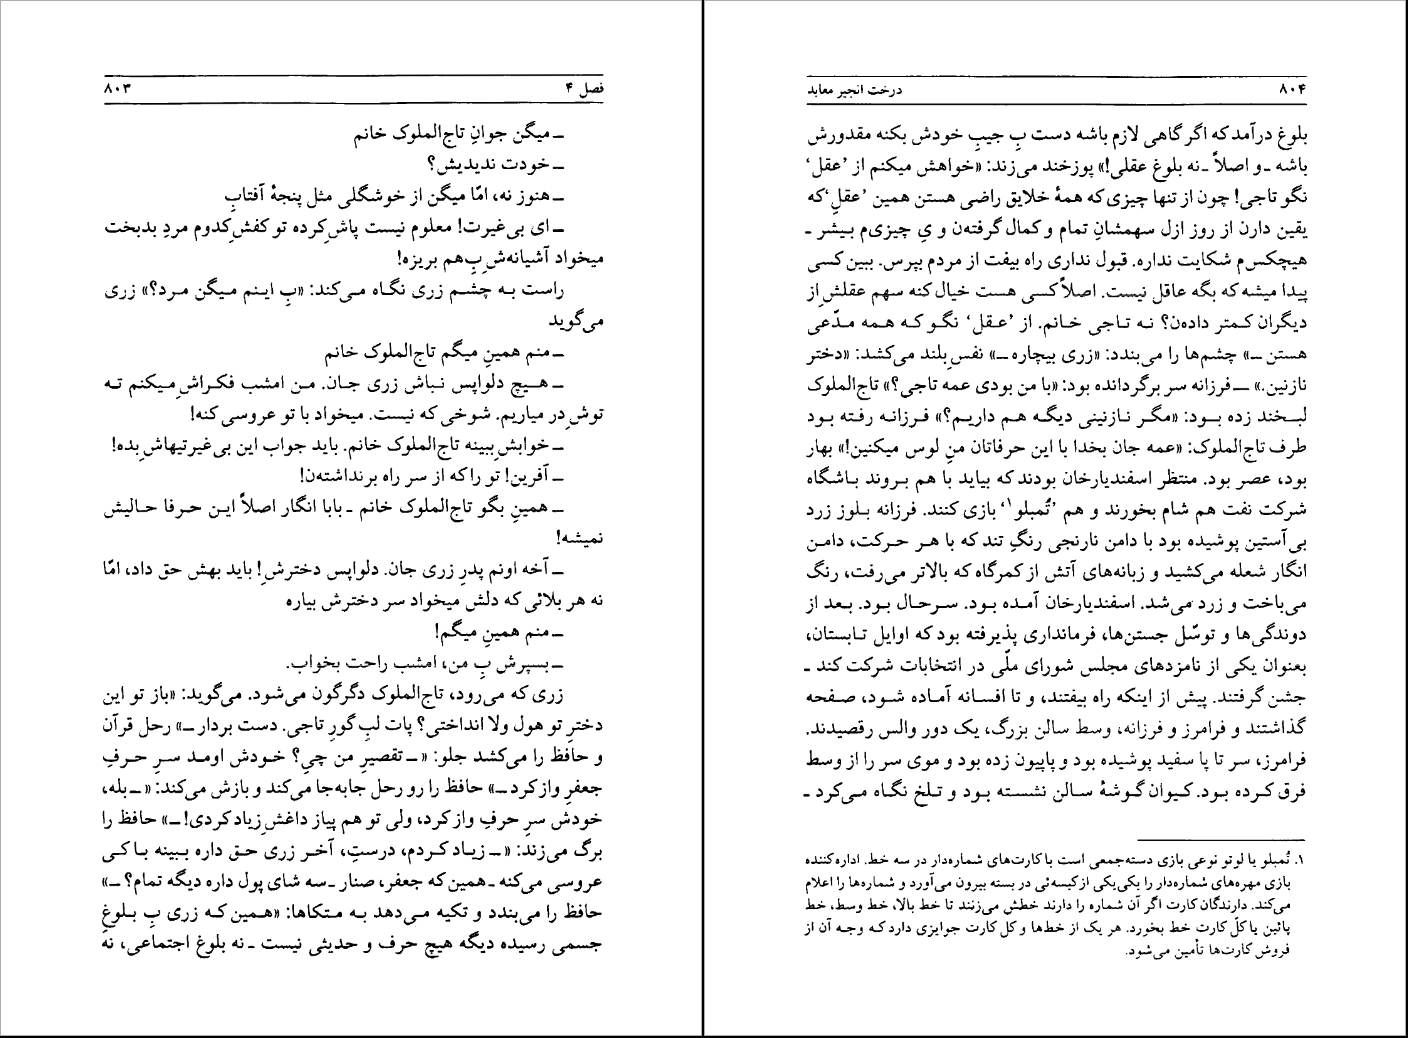 فصل ۴ ۸۰۳
ـ میگن جوانِ تاج‌الملوک خانم
ـ خودت ندیدیش؟
ـ هنوز نه، امّا میگن از خوشگلی مثل پنجهٔ آفتابِ
ـ ای بی‌غیرت! معلوم نیست پاش‌ِ کرده تو کفش‌ِ کدوم مردِ بدبخت
میخواد آشیانه‌ش‌ِ بِ هم بریزه!
راست به چشم زری نگاه می‌کند: «بِ اینم میگن مرد؟» زری
می‌گوید
ـ منم همین‌ِ میگم تاج‌الملوک خانم
ـ هیچ دلواپس نباش زری جان. من امشب فکراش‌ِ میکنم ته
توش‌ِ در میاریم. شوخی که نیست. میخواد با تو عروسی کنه!
ـ خوابش‌ِ ببینه تاج‌الملوک خانم. باید جواب این بی‌غیرتیهاش‌ِ بده!
ـ آفرین! تو را که از سر راه برنداشته‌ن!
ـ همین‌ِ بگو تاج‌الملوک خانم ـ بابا انگار اصلاً این حرفا حالیش
نمیشه!
ـ آخه اونم پدرِ زری جان. دلواپس دخترش‌ِ! باید بهش حق داد، امّا
نه هر بلائی که دلش میخواد سر دخترش بیاره
ـ منم همین‌ِ میگم!
ـ بسپرش بِ من، امشب راحت بخواب.
زری که می‌رود، تاج‌الملوک دگرگون می‌شود. می‌گوید: «باز تو این
دخترِ تو هول ولا انداختی؟ پات لبِ گورِ تاجی. دست بردار ـ» رحل قرآن
و حافظ را می‌کشد جلو: «ـ تقصیرِ من چیِ؟ خودش اومد سرِ حرفِ
جعفرِ واز کرد ـ» حافظ را رو رحل جابه‌جا می‌کند و بازش می‌کند: «ـ بله،
خودش سرِ حرفِ واز کرد، ولی تو هم پیاز داغش‌ِ زیاد کردی! ـ» حافظ را
برگ می‌زند: «ـ زیاد کردم، درستِ، آخر زری حق داره ببینه با کی
عروسی می‌کنه ـ همین که جعفر، صنار ـ سه شای پول داره دیگه تمام؟ ـ»
حافظ را می‌بندد و تکیه می‌دهد به متکاها: «همین که زری بِ بلوغِ
جسمی رسیده دیگه هیچ حرف و حدیثی نیست ـ نه بلوغ اجتماعی، نه
۸۰۴ درخت انجیر معابد
بلوغ درآمد که اگر گاهی لازم باشه دست بِ جیبِ خودش بکنه مقدورش
باشه ـ و اصلاً ـ نه بلوغ عقلی!» پوزخند می‌زند: «خواهش میکنم از ’عقل‘
نگو تاجی! چون از تنها چیزی که همهٔ خلایق راضی هستن همین ’عقلِ‘ که
یقین دارن از روز ازل سهمشانِ تمام و کمال گرفته‌ن و یِ چیزی‌م بیشر ـ
هیچکس‌م شکایت نداره. قبول نداری راه بیفت از مردم بپرس. ببین کسی
پیدا میشه که بگه عاقل نیست. اصلاً کسی هست خیال کنه سهم عقلش‌ِ از
دیگران کمتر داده‌ن؟ نه تاجی خانم. از ’عقل‘ نگو که همه مدّعی
هستن ـ» چشم‌ها را می‌بندد: «زری بیچاره ـ» نفس‌ِ بلند می‌کشد: «دختر
نازنین.» ــ فرزانه سر برگردانده بود: «با من بودی عمه تاجی؟» تاج‌الملوک
لبخند زده بود: «مگر نازنینی دیگه هم داریم؟» فرزانه رفته بود
طرف تاج‌الملوک: «عمه جان بخدا با این حرفاتان منِ لوس میکنین!» بهار
بود، عصر بود. منتظر اسفندیارخان بودند که بیاید با هم بروند باشگاه
شرکت نفت هم شام بخورند و هم ’تُمبلو۱‘ بازی کنند. فرزانه بلوز زرد
بی‌آستین پوشیده بود با دامن نارنجی رنگِ تند که با هر حرکت، دامن
انگار شعله می‌کشید و زبانه‌های آتش از کمرگاه که بالاتر می‌رفت، رنگ
می‌باخت و زرد می‌شد. اسفندیارخان آمده بود. سرحال بود. بعد از
دوندگی‌ها و توسّل جستن‌ها، فرمانداری پذیرفته بود که اوایل تابستان،
بعنوان یکی از نامزدهای مجلس شورای ملّی در انتخابات شرکت کند ـ
جشن گرفتند. پیش از اینکه راه بیفتند، و تا افسانه آماده شود، صفحه
گذاشتند و فرامرز و فرزانه، وسط سالن بزرگ، یک دور والس رقصیدند.
فرامرز، سر تا پا سفید پوشیده بود و پاپیون زده بود و موی سر را از وسط
فرق کرده بود. کیوان گوشهٔ سالن نشسته بود و تلخ نگاه می‌کرد ـ
۱. تُمبلو یا لوتو نوعی بازی دسته‌جمعی است با کارت‌های شماره‌دار در سه خط. اداره‌کننده
بازی مهره‌های شماره‌دار را یکی‌یکی از کیسه‌ئی در بسته بیرون می‌آورد و شماره‌ها را اعلام
می‌کند. دارندگان کارت اگر آن شماره را دارند خطش می‌زنند تا خط بالا، خط وسط، خط
پائین یا کلّ کارت خط بخورد. هر یک از خط‌ها و کل کارت جوایزی دارد که وجه آن از
فروش کارت‌ها تأمین می‌شود.